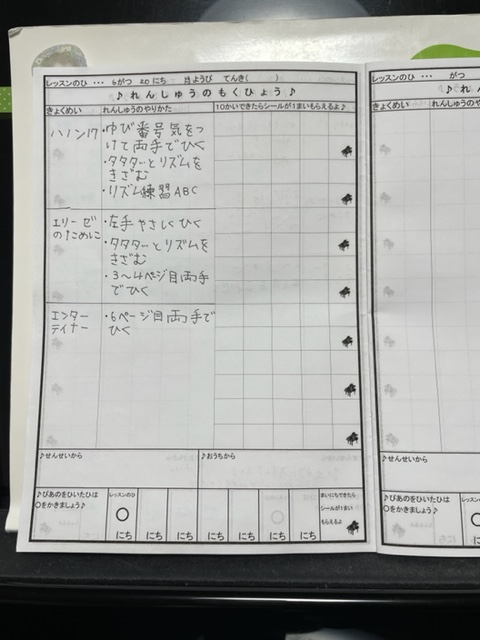 レッスンのひ ・・・ 6がつ 20にち 月ようび てんき( )
♪ れんしゅうのもくひょう ♪
きょくめい れんしゅうのやりかた 10かいできたらシールが1まいもらえるよ♪
ハノン17 ・ゆび番号気をつ
けて両手でひく
・タタタッとリズムを
きざむ
・リズム練習ABC
エリーゼ ・左手やさしくひく
のために ・タタタッとリズムを
きざむ
・3〜4ページ目両手
でひく
エンター ・6ページ目両手で
テイナー ひく
♪せんせいから ♪おうちから
♪ぴあのをひいたひは
○をかきましょう♪
レッスンのひ
○
にち にち にち にち にち にち にち
まいにちできたら
シールが1まい
もらえるよ
レッスンのひ ・・・ がつ
♪ れん
きょくめい れんしゅうのや
♪せんせいから
♪ぴあのをひいたひは
○をかきましょう♪
にち